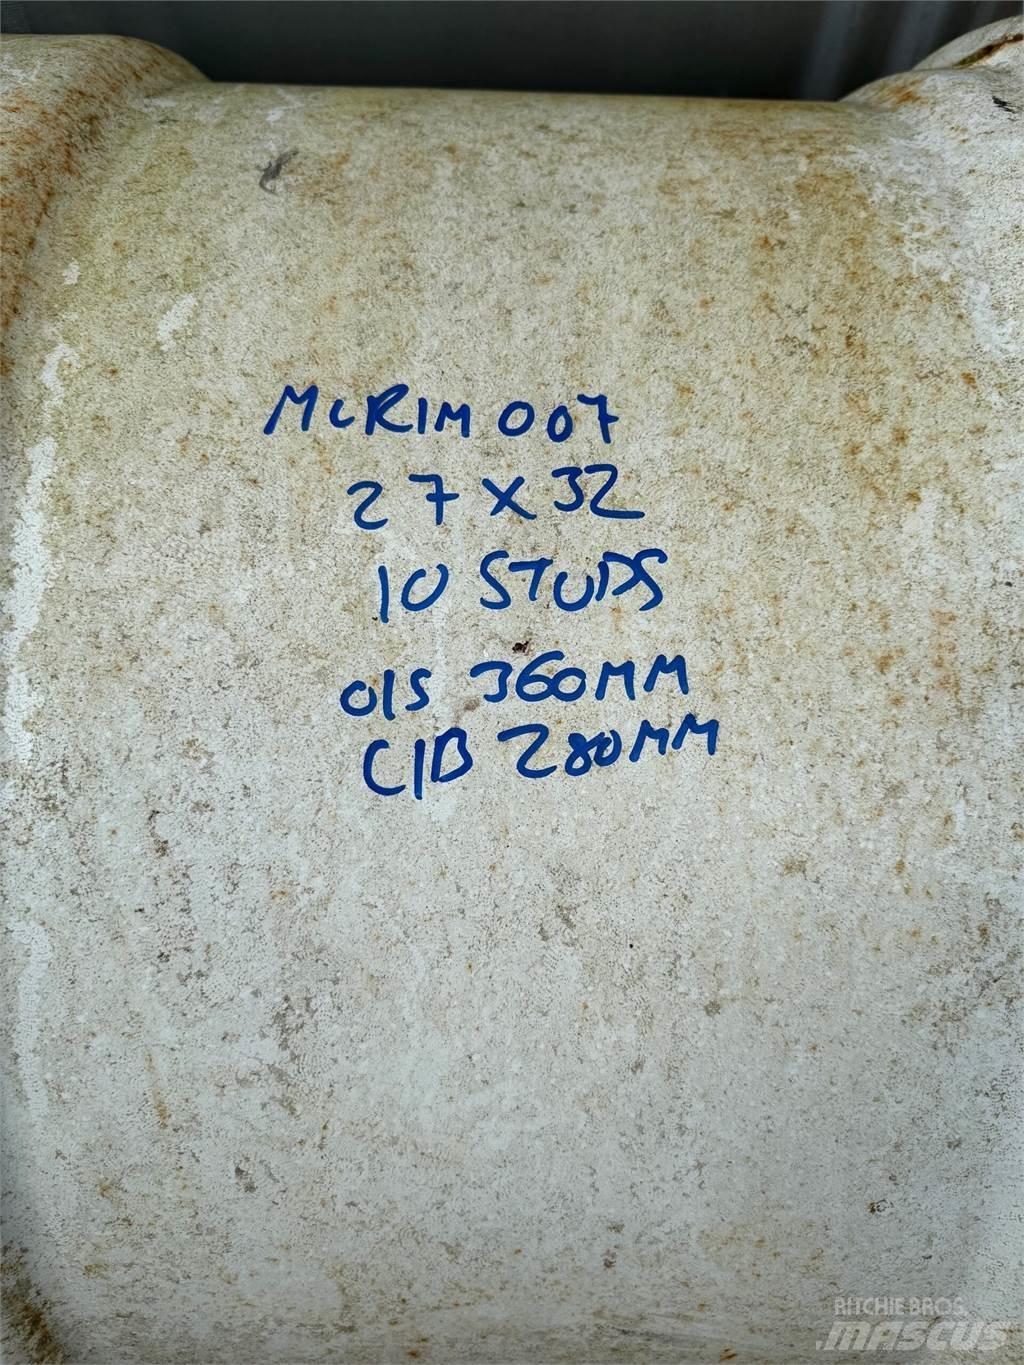 McRIM 007
27 X 32
10 STUDS
O/S 360MM
C/B 280MM
RITCHIE BROS.
MASCUS